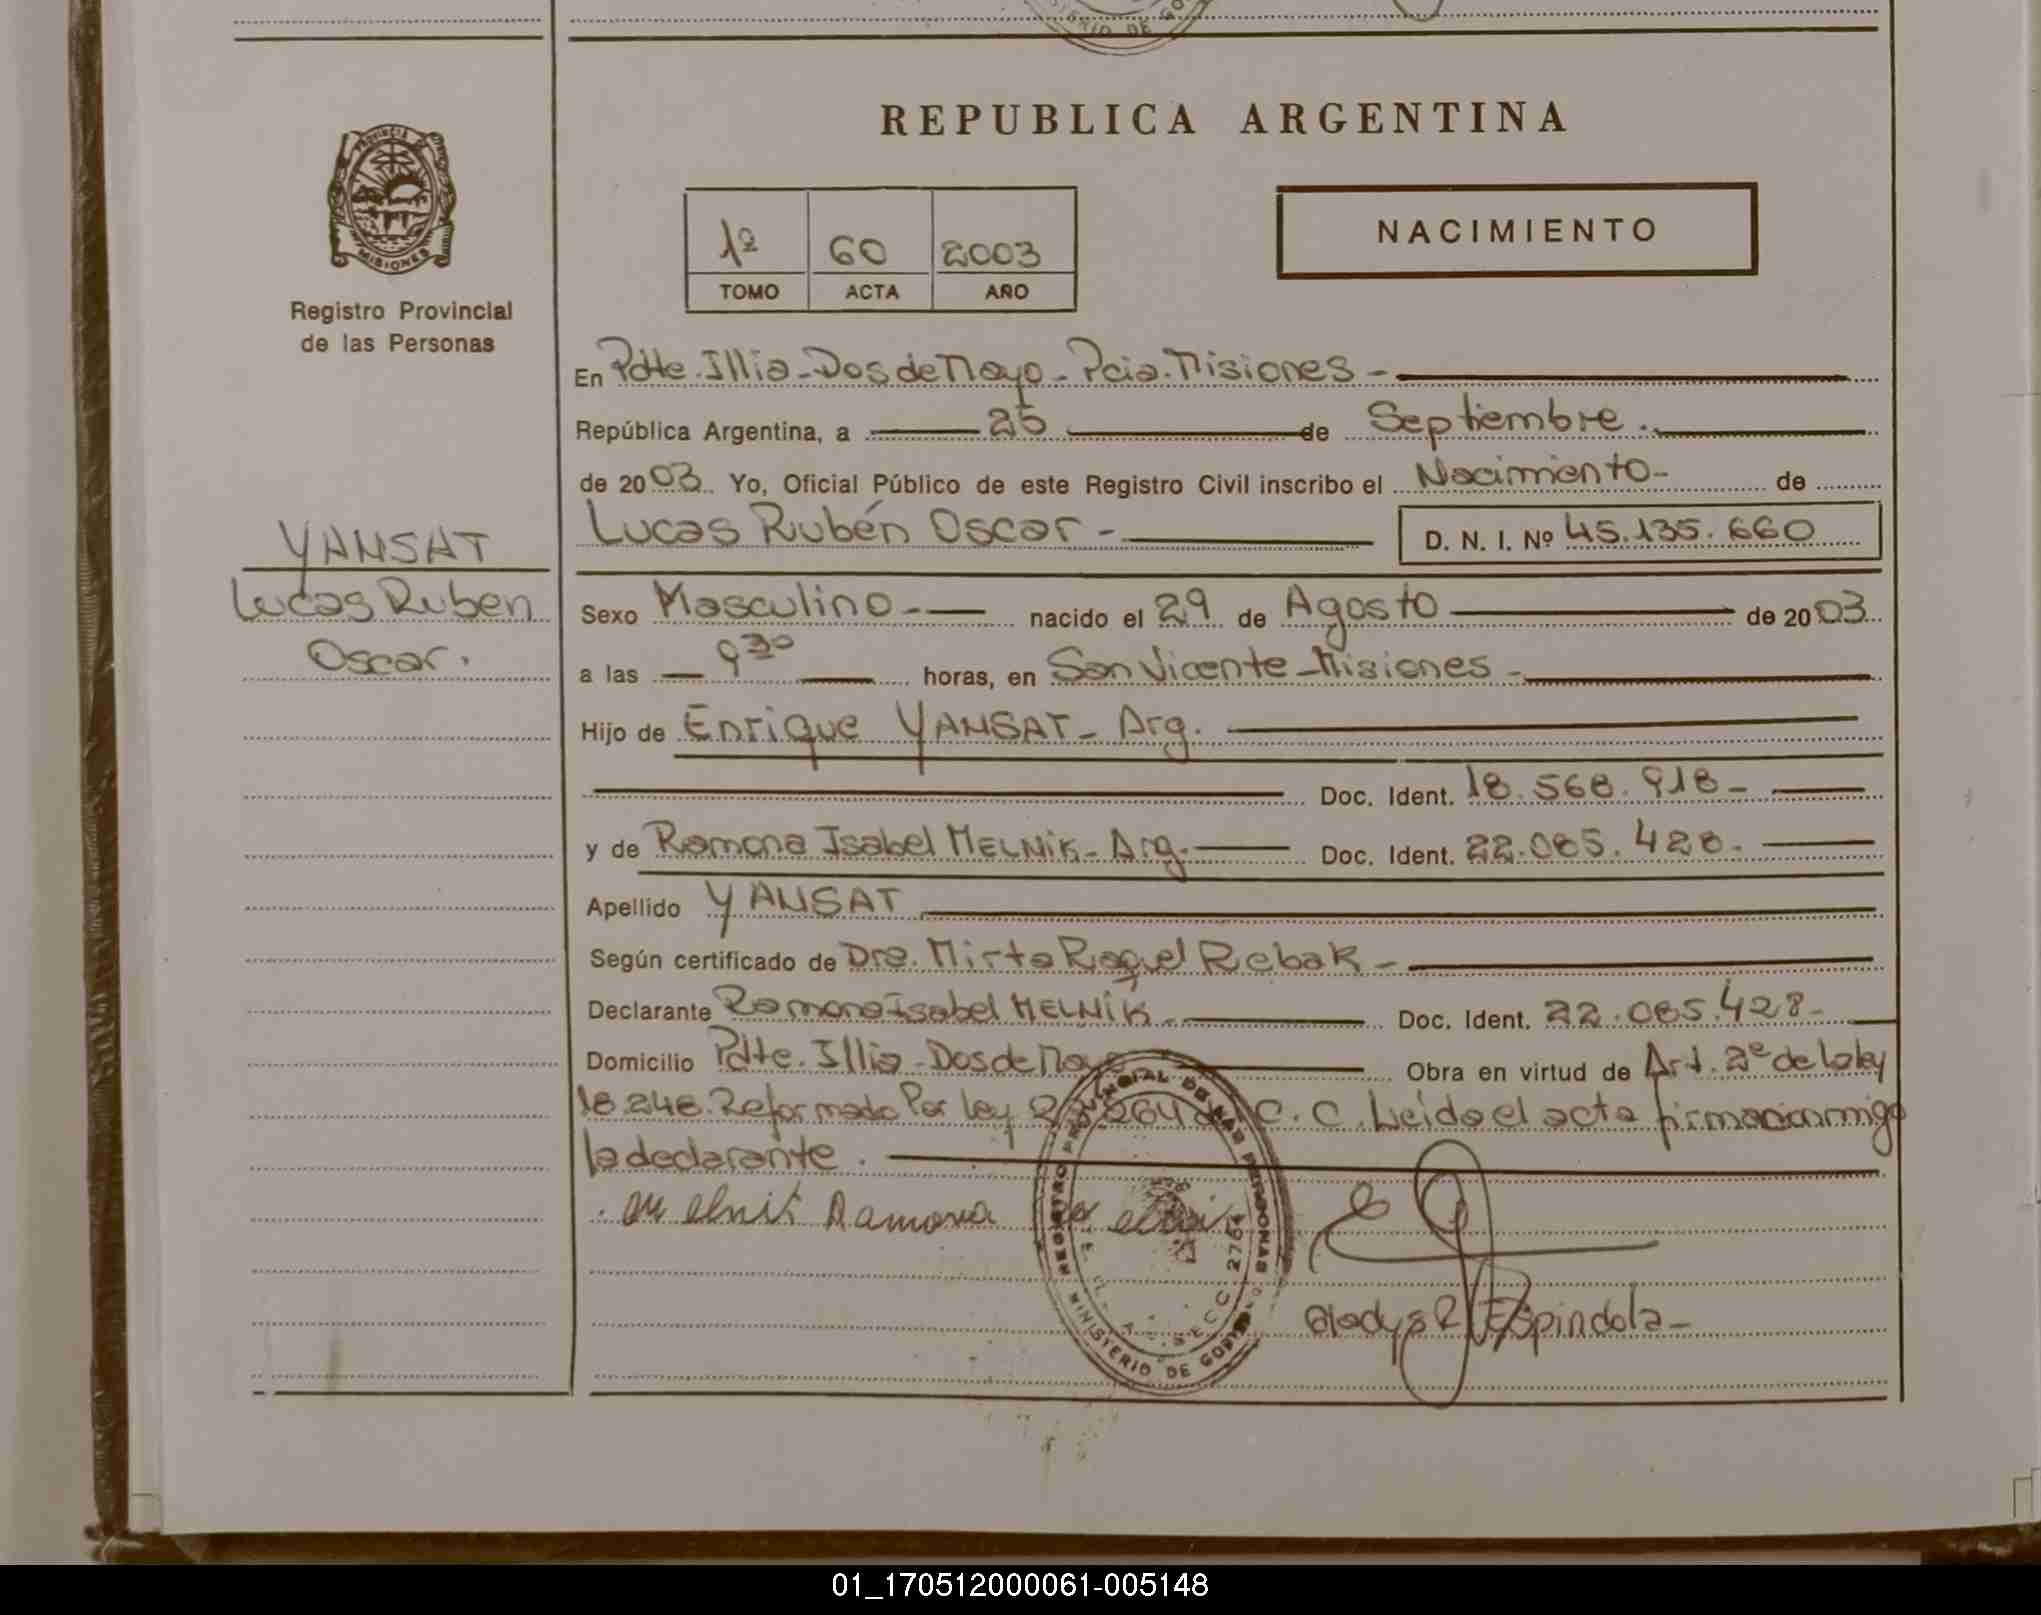 REPUBLICA ARGENTINA
PROVINCIA DE
MISIONES
Registro Provincial
de las Personas
1º 60 2003
TOMO ACTA AÑO
NACIMIENTO
En Pdte. Illia - Dos de Mayo - Pcia. Misiones -
República Argentina, a 25 de Septiembre.
de 2003. Yo, Oficial Público de este Registro Civil inscribo el Nacimiento - de
Lucas Rubén Oscar - D. N. I. Nº 45.135.660
YANSAT
Lucas Ruben
Oscar.
Sexo Masculino - nacido el 29 de Agosto de 2003
a las 9 30 horas, en San Vicente - Misiones -
Hijo de Enrique YANSAT - Arg.
Doc. Ident. 18.568.918 -
y de Ramona Isabel MELNIK - Arg. Doc. Ident. 22.085.428 -
Apellido YANSAT
Según certificado de Dra. Mirta Raquel Rebak -
Declarante Ramona Isabel MELNIK - Doc. Ident. 22.085.428 -
Domicilio Pdte. Illia - Dos de Mayo Obra en virtud de Art. 2º de la ley
18.248. Reformado Por ley 264 C.C. Leida el acta firma conmigo
la declarante.
Melnik Ramona
REGISTRO PROVINCIAL DE LAS PERSONAS
MINISTERIO DE GOBIERNO
SECC 2764
Gladys R. Espindola -
01_170512000061-005148